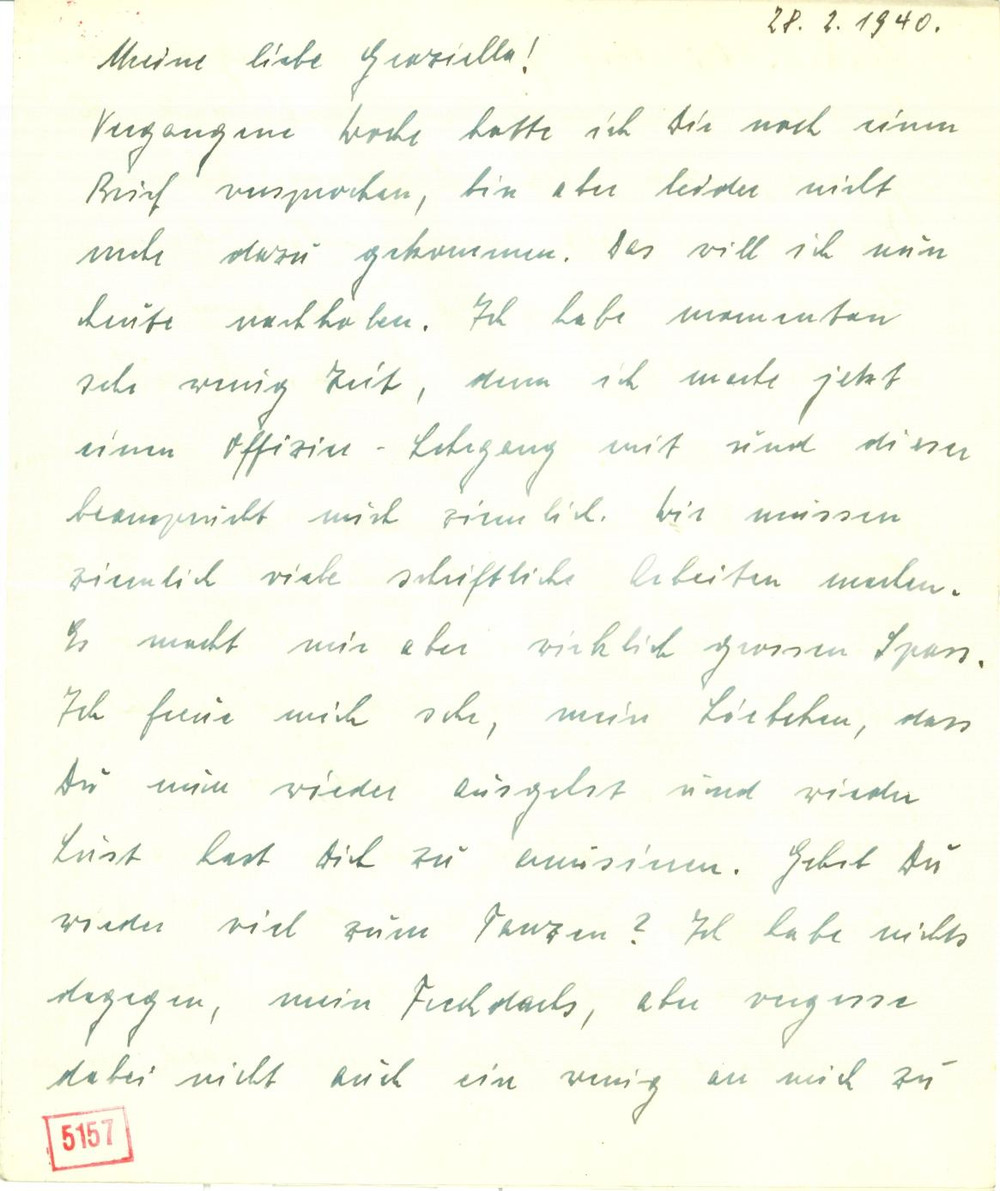 28. 2. 1940.
Meine liebe Graziella!
Vergangene Woche hatte ich Dir noch einen
Brief versprochen, bin aber leider nicht
mehr dazu gekommen. Das will ich nun
heute nachholen. Ich habe momentan
sehr wenig Zeit, denn ich mache jetzt
einen Offizier-Lehrgang mit und dieser
beansprucht mich ziemlich. Wir müssen
ziemlich viele schriftliche Arbeiten machen.
Es macht mir aber wirklich grossen Spass.
Ich freue mich sehr, mein Liebchen, dass
Du nun wieder ausgehst und wieder
Lust hast Dich zu amüsieren. Gehst Du
wieder viel zum Tanzen? Ich habe nichts
dagegen, mein Frechdachs, aber vergesse
dabei nicht auch ein wenig an mich zu
5157